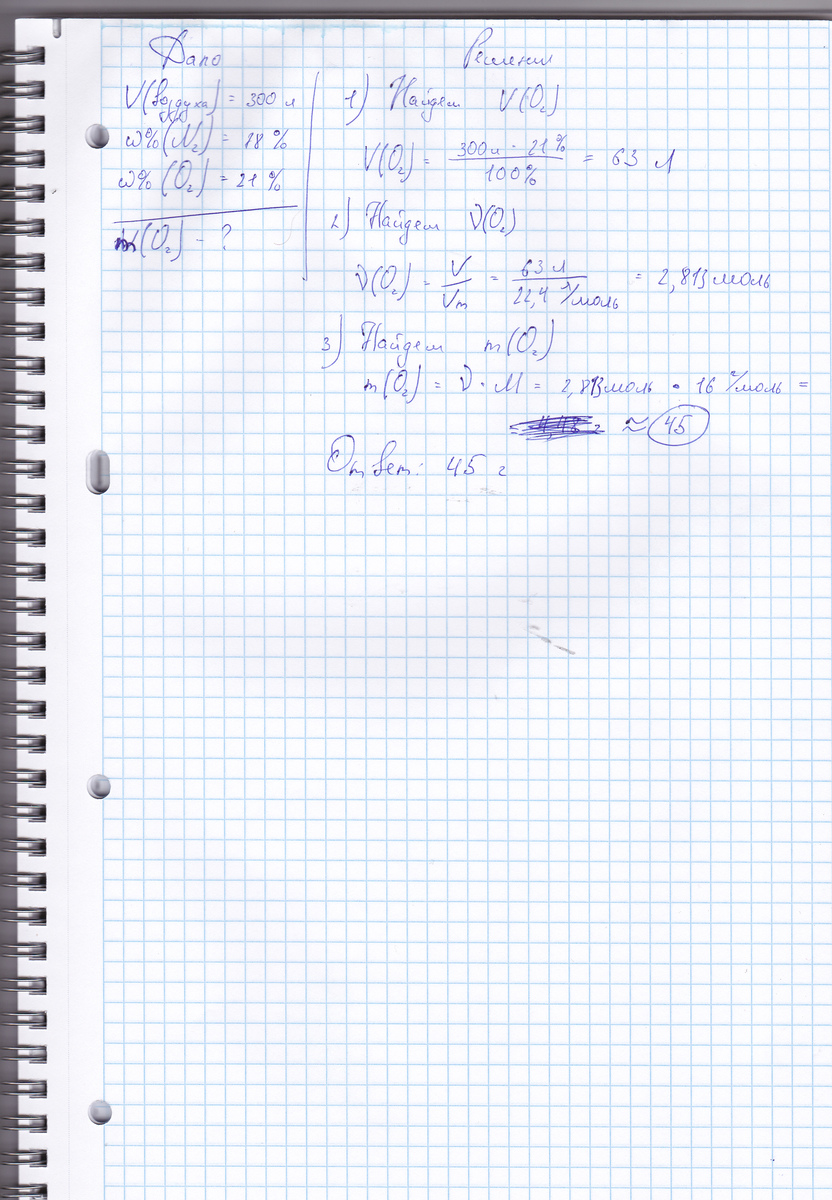 Дано
V(воздуха) = 300 л
ω%(N₂) = 78 %
ω%(O₂) = 21 %
m(O₂) - ?
Решении
1) Найдем V(O₂)
V(O₂) = 300л · 21% / 100% = 63 л
2) Найдем ν(O₂)
ν(O₂) = V / Vm = 63 л / 22,4 л/моль = 2,813 моль
3) Найдем m(O₂)
m(O₂) = ν · M = 2,813 моль · 16 г/моль =
≈ 45
Ответ: 45 г